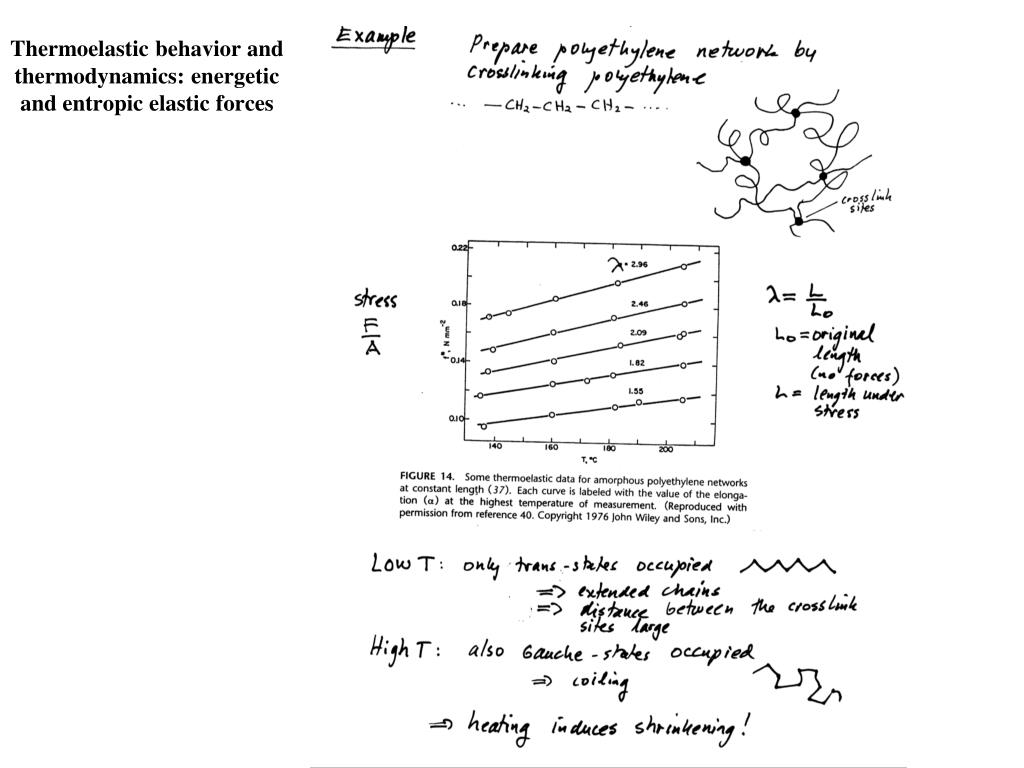 Thermoelastic behavior and
thermodynamics: energetic
and entropic elastic forces
Example
Prepare polyethylene network by
crosslinking polyethylene
... —CH2–CH2–CH2– ....
crosslink
sites
stress
F
A
0.22
0.18
0.14
0.10
f*, N mm-2
λ = 2.96
2.46
2.09
1.82
1.55
140 160 180 200
T, °C
λ = L
L0
L0 = original
length
(no forces)
L = length under
stress
FIGURE 14. Some thermoelastic data for amorphous polyethylene networks
at constant length (37). Each curve is labeled with the value of the elonga-
tion (α) at the highest temperature of measurement. (Reproduced with
permission from reference 40. Copyright 1976 John Wiley and Sons, Inc.)
Low T: only trans-states occupied
⇒ extended chains
⇒ distance between the crosslink
sites large
High T: also Gauche-states occupied
⇒ coiling
⇒ heating induces shrinkening!